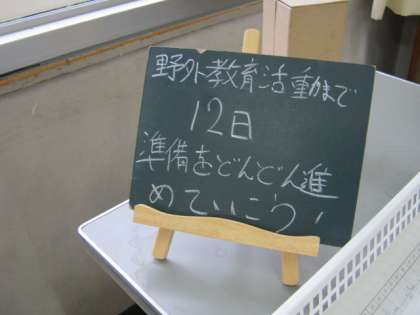 野外教育活動まで
12日
準備をどんどん進
めていこう!